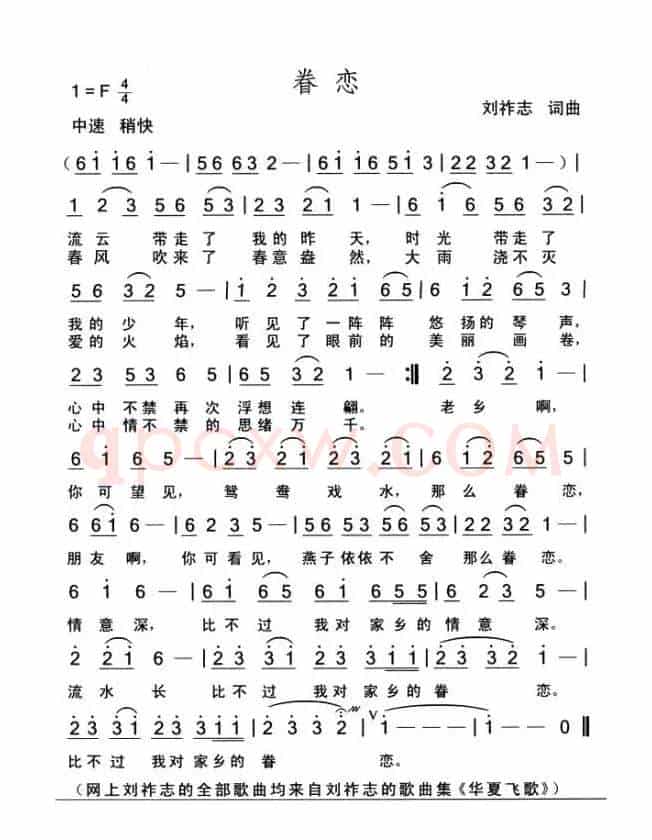 眷恋
1=F 4/4
刘祚志 词曲
中速 稍快
(6i i6 i —|56 63 2—|35 65 i6 5i3|22 32 1 —)|
1 2 3 5 6 53|2 3 21 1 —|6 i 6 56 23|
流云 带走了 我的昨 天，时光 带走了
春风 吹来了 春意盎 然，大雨 浇不灭
5 6 32 5 —|i 2 3 2i 65|6 i2 65 3|
我的少 年，听见了一阵阵 悠扬的琴 声，
爱的火 焰，看见了眼前的 美丽画 卷，
23 53 6 5|65 32 1 —:‖2 32 i —|
心中不禁再次浮想连 翩。 老乡 啊，
心中情不禁的思绪万 千。
6 i 65 —|23 2i 23 2i|6i2 65 5|
你可望见，鸳鸯戏水，那么眷恋，
6 6i 6 —|i 6 23 —|35 53 56 53|22 32 1 —|
朋友啊， 你可看见，燕子依依不 舍 那么眷 恋。
6 i 6 —|i 6 i —|6i 2i 6i 655|6i 23 5 —|
情意深， 比不过 我对家乡的情意 深。
2 2i 6 —|23 3i 23 3ii|2 3 32 i —|
流水长 比不过 我对家乡的眷 恋。
23 3i 23 3ii|2 3 32 3 V i — — —|i — — 0‖
比不过 我对家乡的眷 恋。
（网上刘祚志的全部歌曲均来自刘祚志的歌曲集《华夏飞歌》）
qpcxw.com